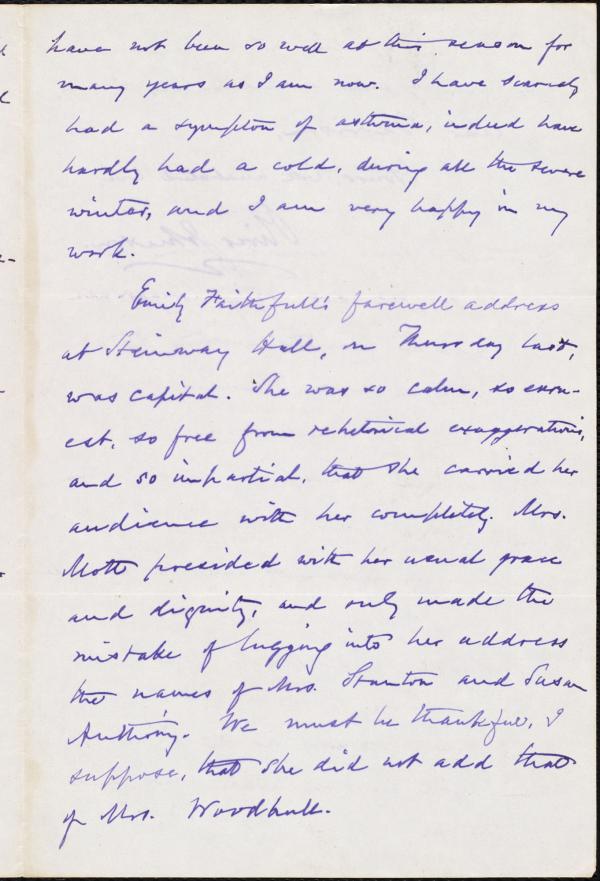 have not been so well at this season for
many years as I am now. I have scarcely
had a symptom of asthma, indeed have
hardly had a cold, during all the severe
winter, and I am very happy in my
work.
Emily Faithfull's farewell address
at Steinway Hall, on Thursday last,
was capital. She was so calm, so earn-
est, so free from rhetorical exaggerations,
and so impartial, that she carried her
audience with her completely. Mrs.
Mott presided with her usual grace
and dignity, and only made the
mistake of lugging into her address
the names of Mrs. Stanton and Susan
Anthony. We must be thankful, I
suppose, that she did not add that
of Mrs. Woodhull.